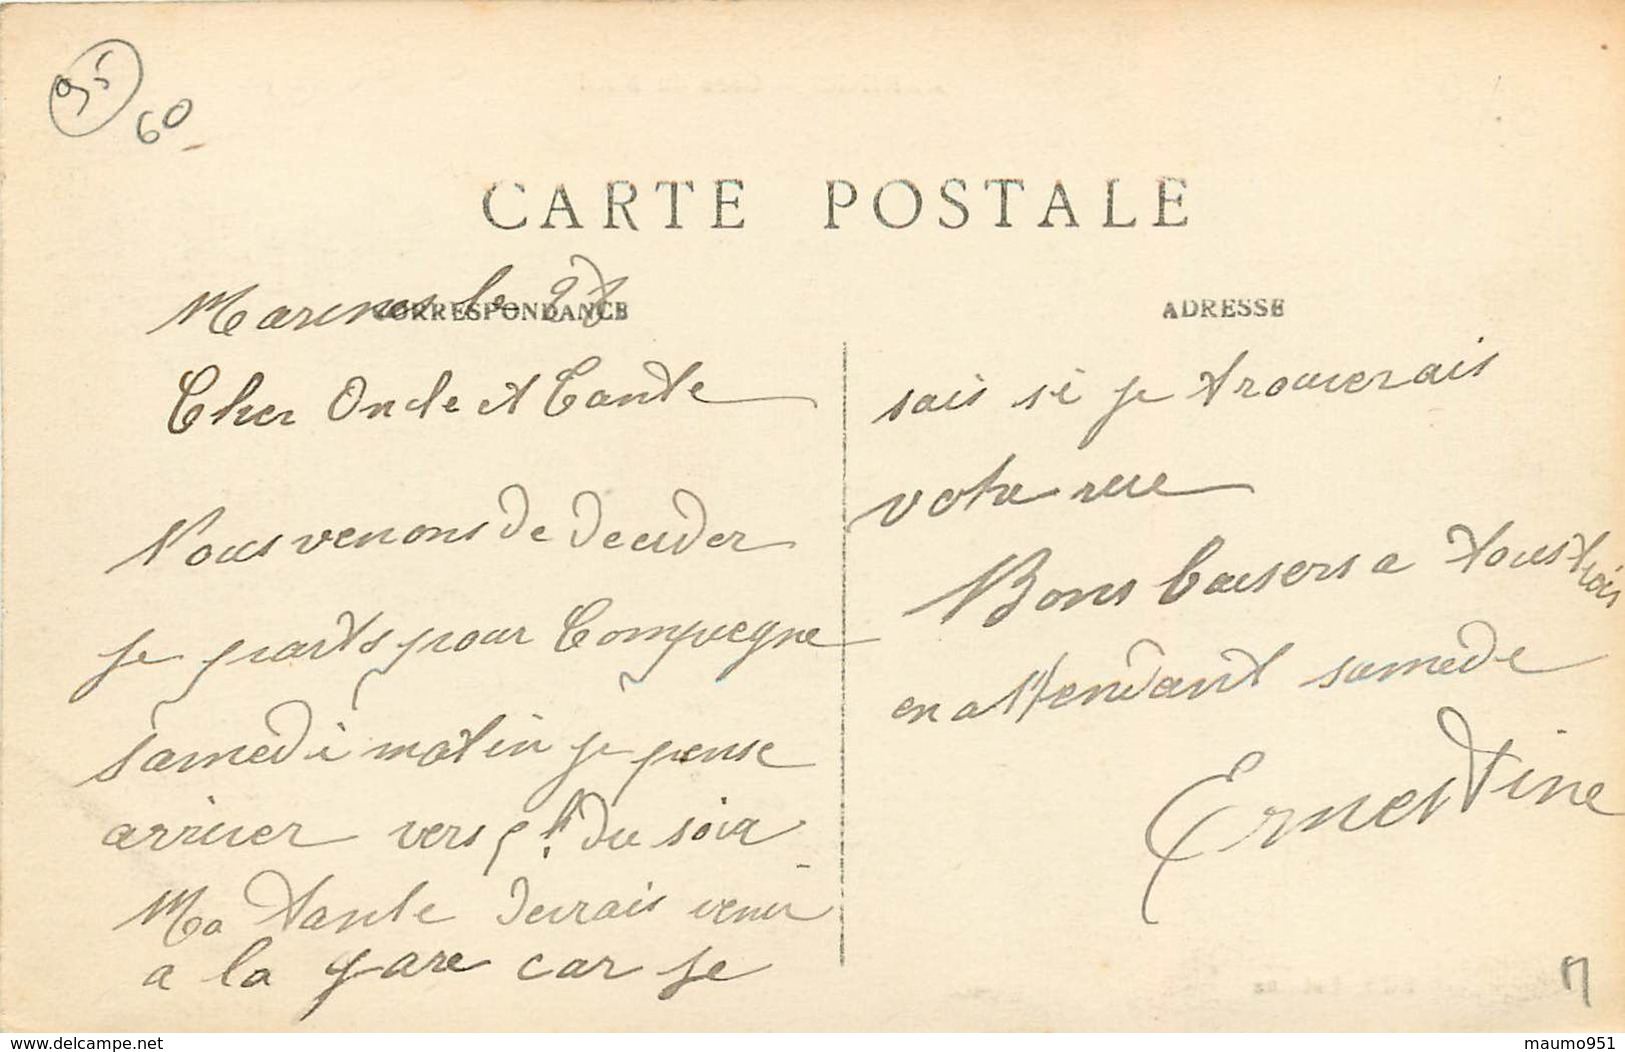 95
60
CARTE POSTALE
CORRESPONDANCE
ADRESSE
Marines le 28
Cher Oncle et Tante
Nous venons de decider
je parts pour Compiegne
samedi matin je pense
arriver vers 5h du soir
Ma tante devrais venir
a la gare car je
sais si je trouverais
votre rue
Bons baisers a tous trois
en attendant samedi
Ernestine
www.delcampe.net
maumo951